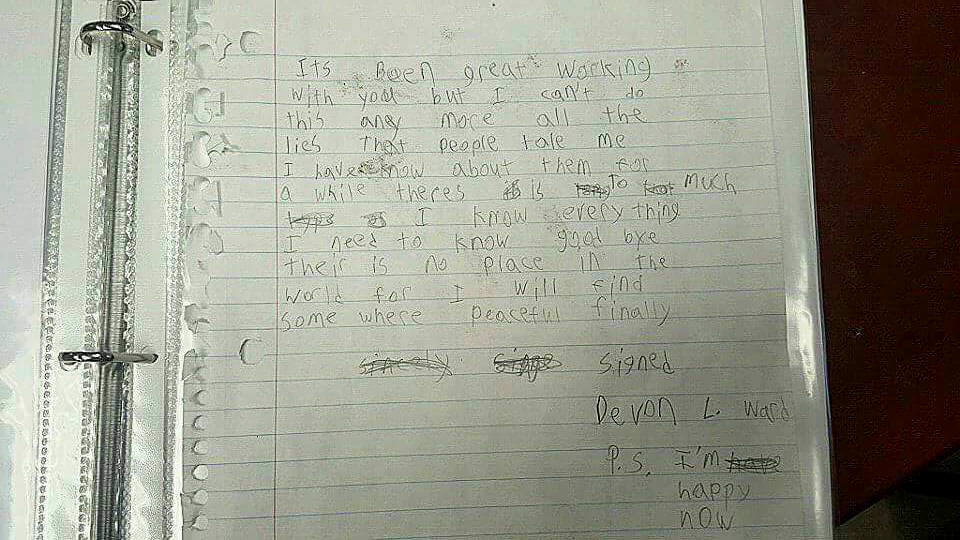 Its Been great working
with you but I can't do
this any more all the
lies That people tale me
I have know about them for
a while theres is To much
I know every thing
I need to know good bye
their is no place in the
world for I will find
some where peaceful finally
sincely signed
Devon L. Ward
P.S. I'm
happy
now